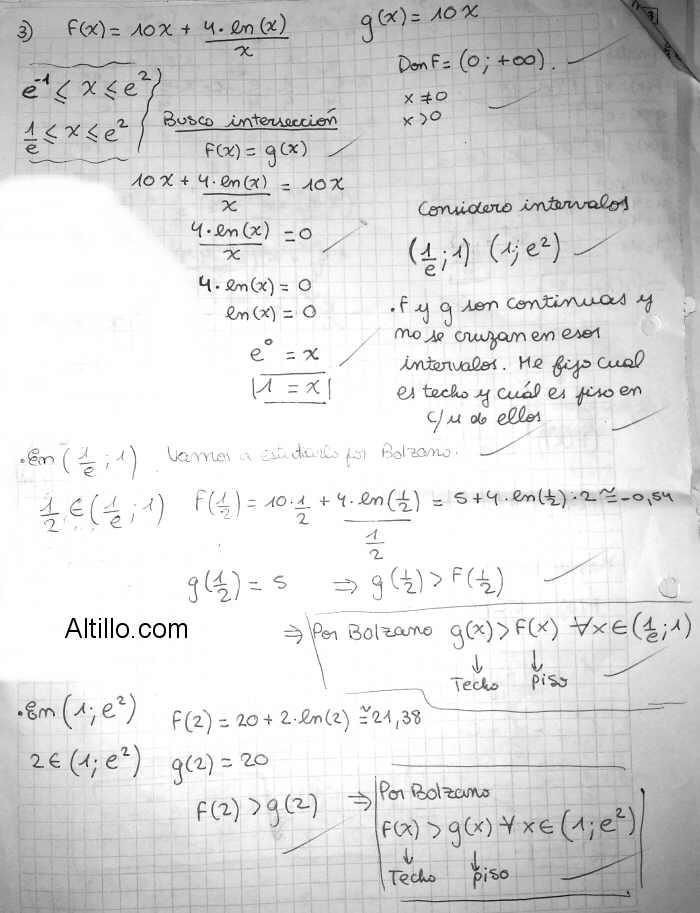 3) F(x) = 10x + 4·ln(x)/x g(x) = 10x
DomF = (0; +∞).
e⁻¹ ≤ x ≤ e²
x ≠ 0
x > 0
1/e ≤ x ≤ e²
Busco intersección
F(x) = g(x)
10x + 4·ln(x)/x = 10x
4·ln(x)/x = 0
4·ln(x) = 0
ln(x) = 0
e⁰ = x
1 = x
Considero intervalos
(1/e; 1) (1; e²)
·F y g son continuas y
no se cruzan en esos
intervalos. Me fijo cual
es techo y cuál es piso en
c/u de ellos
·En (1/e; 1). Vamos a estudiarlo por Bolzano.
1/2 ∈ (1/e; 1) F(1/2) = 10·1/2 + 4·ln(1/2)/(1/2) = 5+4·ln(1/2)·2 ≅ -0,54
g(1/2) = 5 ⇒ g(1/2) > F(1/2)
Altillo.com
⇒ Por Bolzano g(x) > F(x) ∀x ∈ (1/e; 1)
↓ ↓
Techo piso
·En (1; e²) F(2) = 20 + 2·ln(2) ≅ 21,38
2 ∈ (1; e²) g(2) = 20
F(2) > g(2) ⇒ Por Bolzano
F(x) > g(x) ∀x ∈ (1; e²)
↓ ↓
Techo piso